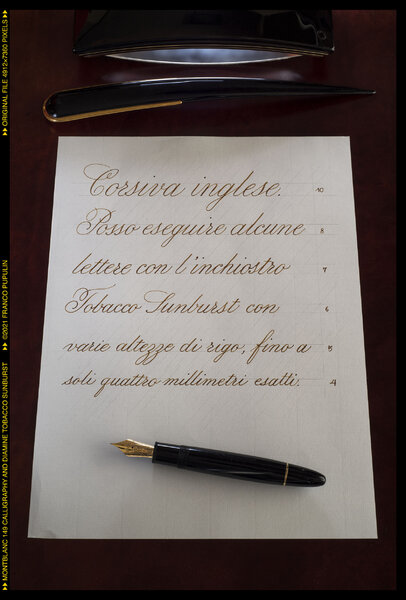 Corsiva inglese. 10
Posso eseguire alcune 8
lettere con l'inchiostro 7
Tobacco Sunburst con 6
varie altezze di rigo, fino a 5
soli quattro millimetri esatti. 4
MONTBLANC 149 CALLIGRAPHY AND DIAMINE TOBACCO SUNBURST ©2021 FRANCO PUPULIN ORIGINAL FILE 4912x7360 PIXELS